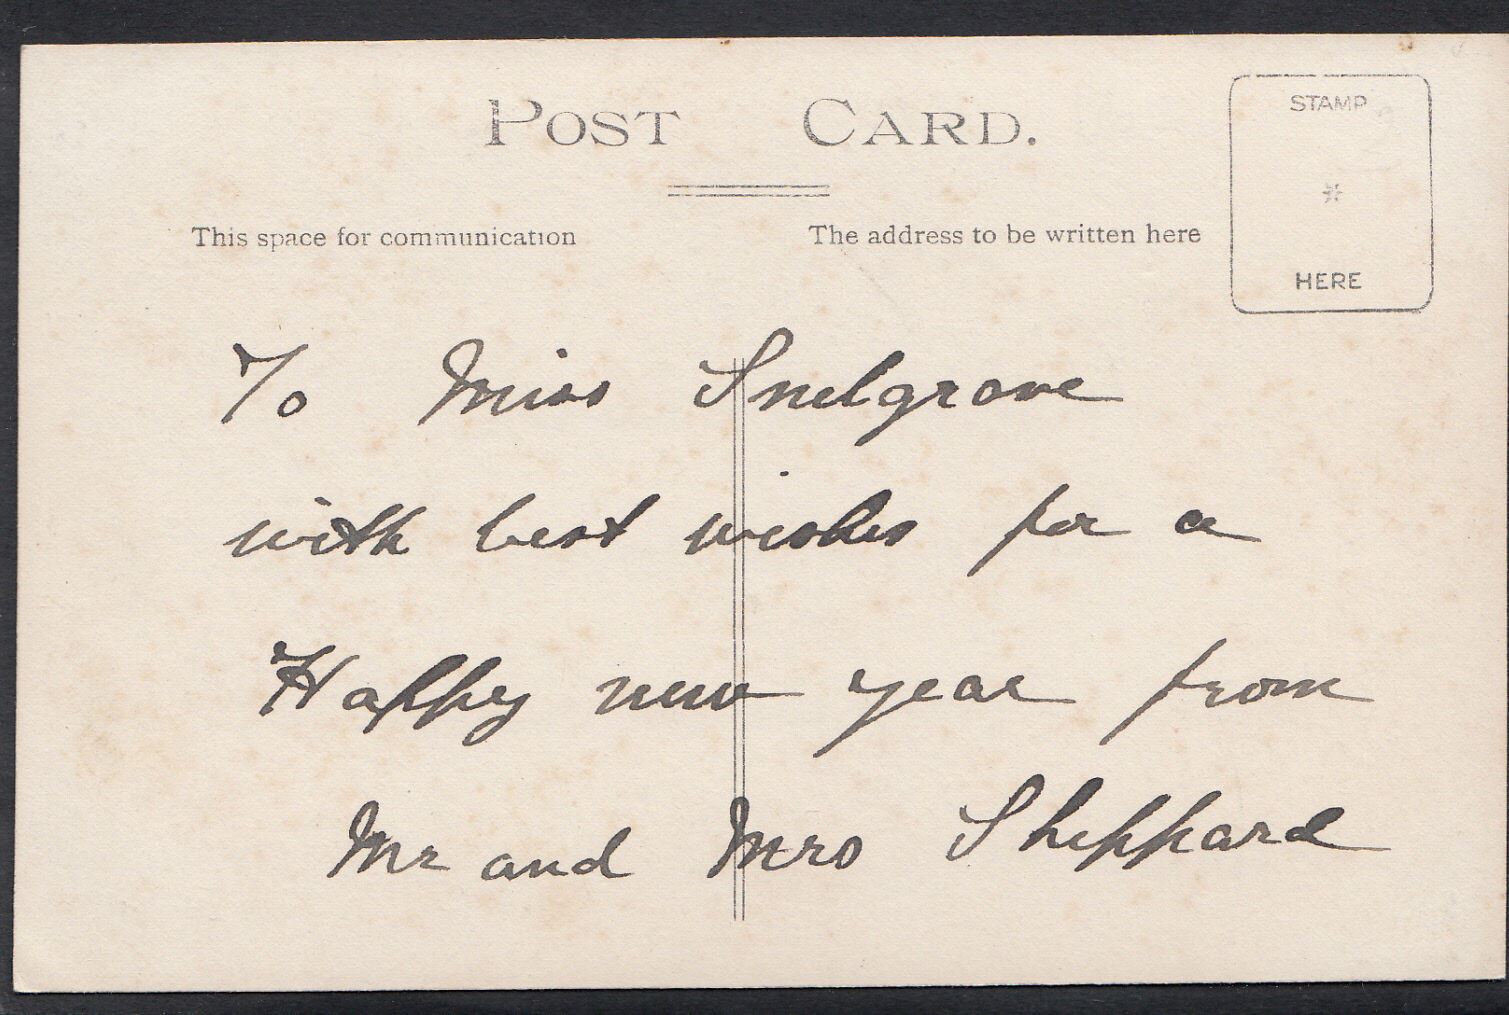 POST CARD.
STAMP
*
HERE
This space for communication
The address to be written here
To Miss Snelgrove
with best wishes for a
Happy new year from
Mr and Mrs Sheppard